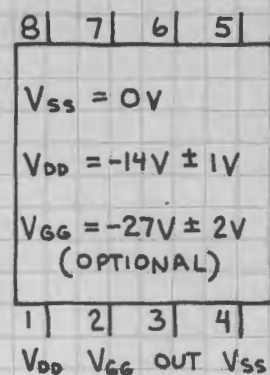 8 7 6 5
Vss = 0V
VDD = -14V ± 1V
VGG = -27V ± 2V
(OPTIONAL)
1 2 3 4
VDD VGG OUT VSS